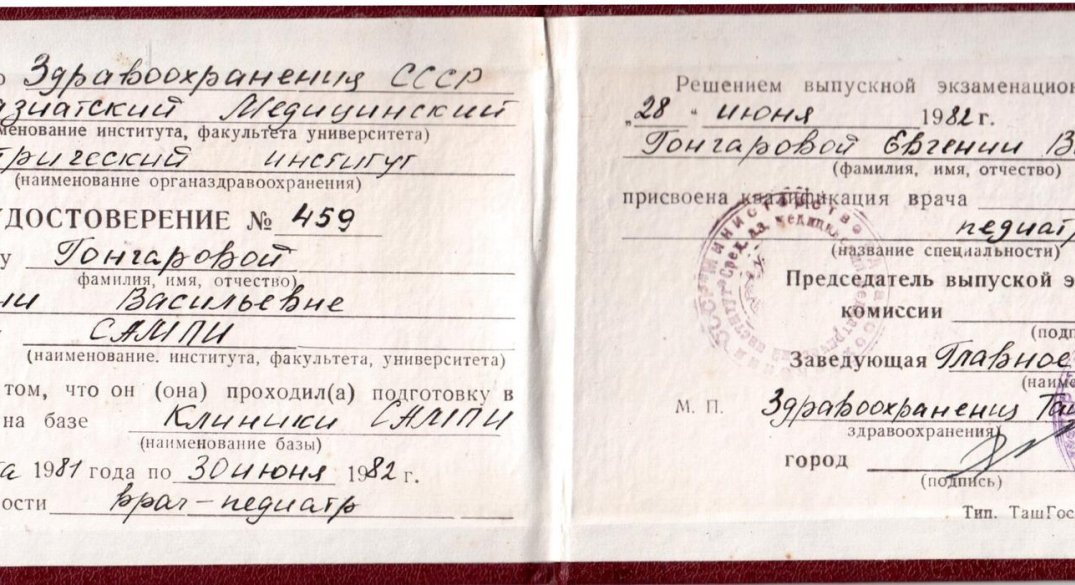 о Здравоохранения СССР
азиатский Медицинский
менование института, факультета университета)
трический институт
(наименование органаздравоохранения)
УДОСТОВЕРЕНИЕ № 459
у Гончаровой
фамилия, имя, отчество)
нии Васильевне
САМПИ
(наименование. института, факультета, университета)
том, что он (она) проходил(а) подготовку в
на базе Клиники САМПИ
(наименование базы)
та 1981 года по 30 июня 1982 г.
ости врач-педиатр
Решением выпускной экзаменацион
„28 " июня 1982 г.
Гончаровой Евгении В
(фамилия, имя, отчество)
присвоена квалификация врача
педиатр
(название специальности)
Председатель выпускной э
комиссии
(подп
Заведующая Главное
(наимо
М. П. Здравоохранения Таш
здравоохранения)
город
(подпись)
Тип. ТашГос